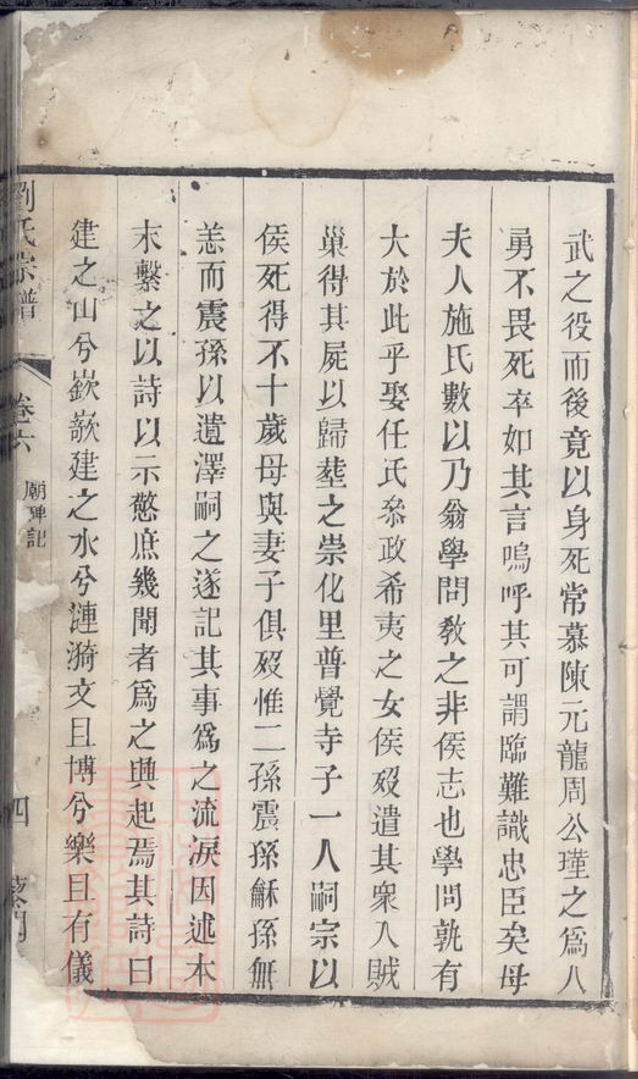 武之役而後竟以身死常慕陳元龍周公瑾之爲人
勇不畏死卒如其言嗚呼其可謂臨難識忠臣矣母
夫人施氏數以乃翁學問教之非侯志也學問孰有
大於此乎娶任氏叅政希夷之女侯殁遣其衆入賊
巢得其屍以歸塟之崇化里普覺寺子一人嗣宗以
侯死得不十歲母與妻子俱殁惟二孫震孫龢孫無
恙而震孫以遺澤嗣之遂記其事爲之流淚因述本
末繫之以詩以示慜庶幾聞者爲之興起焉其詩曰
建之山兮嶔嶔建之水兮漣漪文且博兮樂且有儀
劉氏宗譜
卷六
廟碑記
四